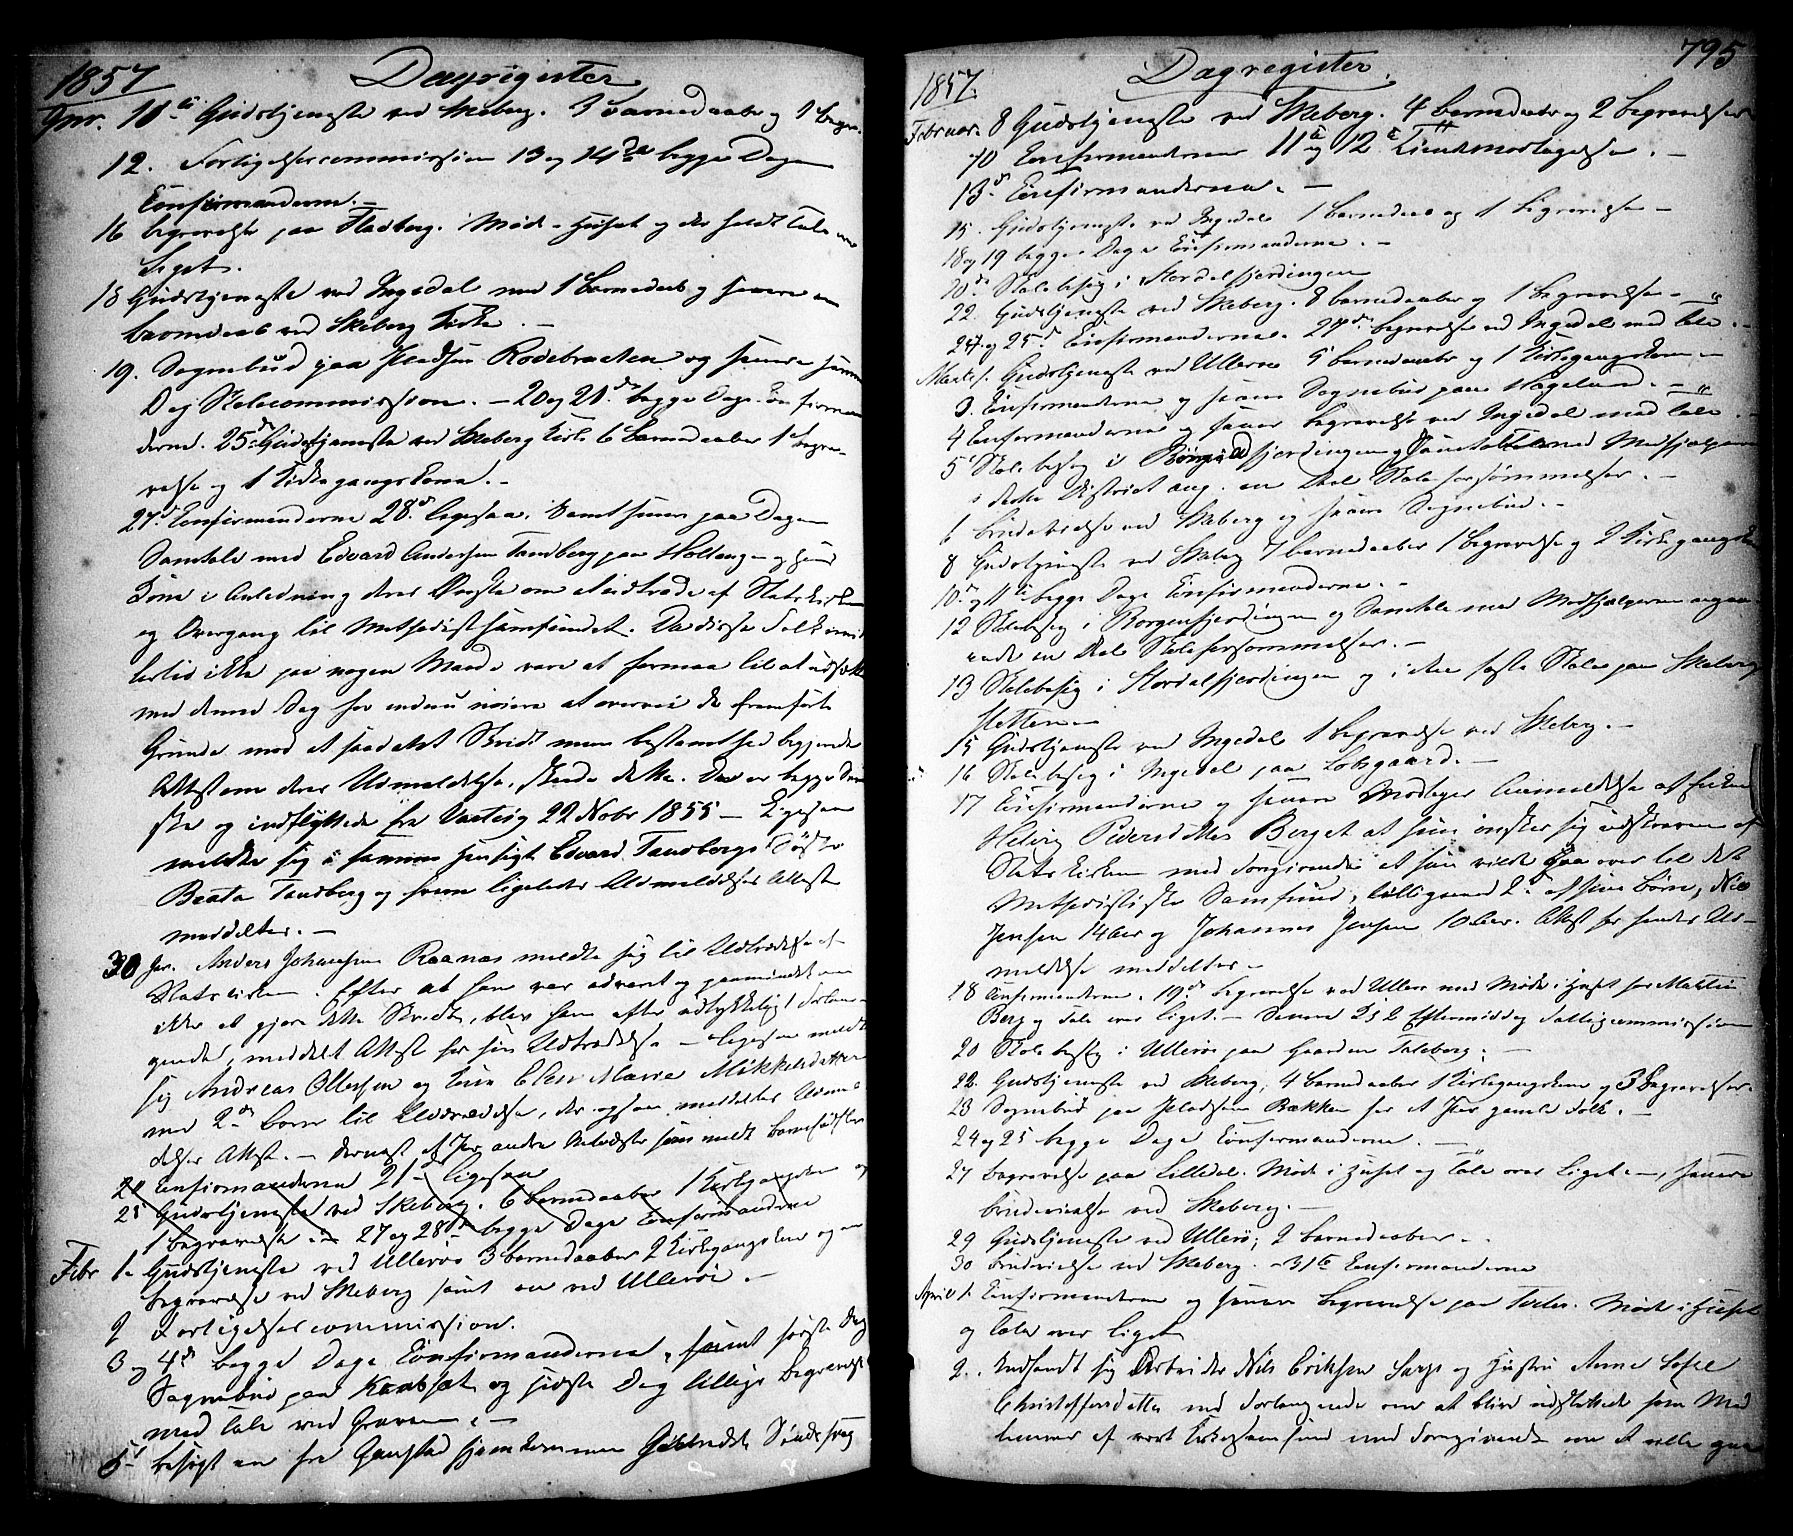 1857 Dagregister
Jnr. 11te Gudstjeneste ved Skeberg. 3 barnedaab og 1 begr.
12. Forligelsescommission 13 og 14de begge Dage
Confirmanderne.
16 begravelse paa Hadberg. Møde i Huset og der holdt Tale over
Liget.
18 Gudstjeneste ved Ingedal med 1 barnedaab og senere en
barnedaab ved Skeberg Kirke.
19. Sognebud paa Pladsen Rødebraaten og senere samme
Dag Skolecommission. - 20 og 21de begge Dage Confirman-
derne. 25de Gudstjeneste ved Skeberg Kirke 6 barnedaaber 1 begra-
velse og 1 Kirkegangskone.
27de Confirmanderne 28de ligesaa, samt senere paa Dagen
Samtale med Edvard Andersen Tandberg paa Holtengen og hans
Kone i Anledning deres Ønske om at udtræde af Statskirken
og Overgang til Methodistsamfundet. Da disse Folk imid-
lertid ikke paa nogen Maade vare at formaa til at udsætte
med denne Sag for endnu nøiere at overveie de fremførte
Grunde mod et saadant Skridt men bestemt begjerede
Attest om deres Udmeldelse, skede dette. De er begge Dan-
ske og indflyttede fra 22 Nobr 1855 - Ligesaa
meldte sig i samme Hensigt Edvard Tandbergs Søster
Beata Tandberg og hvem ligeledes Udmeldelses Attest
meddeltes.
30 Jnr. Anders Johansen Raanaas meldte sig til Udtrædelse af
Statskirken. Efter at han var advaret og paamindet om
ikke at gjøre dette Skridt, blev ham efter udtrykkeligt Forlan-
gende, meddelt Attest for sin Udtrædelse - ligesaa meldte
sig Andreas Ollesen og Kone Ellen Marie Mikkelsdatter
med 2de børn til Udtrædelse, der ogsaa meddeltes Udmel-
delses Attest. - dernæst af
20 Confirmanderne 21de ligesaa
25 Gudstjeneste ved Skeberg. 6 barnedaaber 1 Kirkegangskone og
1 begravelse 27 og 28de begge Dage Confirmanderne
Febr 1. Gudstjeneste ved Ullerøe 3 barnedaaber 2 Kirkegangskoner og en
begravelse ved Skeberg samt en ved Ullerøe.
2 Forligelsescommission.
3 og 4de begge Dage Confirmanderne, samt første Dag
Sognebud paa og sidste Dag tillige begravelse
med Tale ved Graven.
5te besøgt en fra Ganstad hjemkommen Sindssvag
795
1857. Dagregister.
Februar 8 Gudstjeneste ved Skeberg. 4 barnedaab og 2 begravelser
10 Confirmanderne 11te og 12te Tiendemodtagelse.
13de Confirmanderne.
15. Gudstjeneste ved Ingedal 1 barnedaab og 1 begravelse
18 og 19 begge Dage Confirmanderne.
20de Skolebesøg i Stordalfjerdingen
22. Gudstjeneste ved Skeberg. 8 barnedaaber og 1 begravelse
24 og 25de Confirmanderne. 27de begravelse ved Ingedal med Tale.
Marts 1. Gudstjeneste ved Ullerøe 5 barnedaaber og 1 Kirkegangskone
3. Confirmanderne og senere Sognebud paa Hageland.
4 Confirmanderne og senere begravelse ved Ingedal med Tale.
5 Skolebesøg i fjerdingen og Samtale med Medhjælperne
i dette District ang. en Deel Skoleforsømmelser.
6 brudevielse ved Skeberg og senere Sognebud.
8 Gudstjeneste ved Skeberg 7 barnedaaber 1 begravelse og 2 Kirkegangskoner
10de og 11te begge Dage Confirmanderne.
12 Skolebesøg i Borgenfjerdingen og Samtale med Medhjælperne angaa-
ende en Deel Skoleforsømmelser.
13 Skolebesøg i Stordalfjerdingen og i den faste Skole paa Skeberg
sletten.
15 Gudstjeneste ved Ingedal 1 begravelse ved Skeberg.
16 Skolebesøg i Ingedal paa Løbsgaard.
17 Confirmanderne og senere Modtager Anmeldelse af Enken
Helvig Pedersdatter Berget at hun ønsker sig udskreven af
Statskirken med Foregivende at hun vilde gaa over til det
Methodistiske Samfund, tilligemed 2de af sine børn, Nils
Jensen 14 Aar og Johannes Jensen 10 Aar. Attest for hendes Ud-
meldelse meddeltes.
18 Confirmanderne. 19de begravelse ved Ullerøe med Møde i Huset for Mathea
Berg og Tale over Liget. - Samme Eftermiddag Fattigcommission
20 Skolebesøg i Ullerøe paa Gaarden Taleberg.
22. Gudstjeneste ved Skeberg, 4 barnedaaber 1 Kirkegangskone og 3 begravelser.
23 Sognebud paa Pladsen Bækken for et Par gamle Folk.
24 og 25 begge Dage Confirmanderne.
27 begravelse paa Lilledal. Møde i Huset og Tale over Liget, senere
brudevielse ved Skeberg.
29 Gudstjeneste ved Ullerøe, 2 barnedaaber.
30 brudevielse ved Skeberg. - 31te Confirmanderne
April 1. Confirmanderne og senere begravelse paa Møde i Huset
og Tale over Liget
2. Indfandt sig Arbeider Nils Eriksen og Hustru Anne Sofie
Christoffersdatter med Forlangende om at blive udslettede som Med-
lemmer af vort Kirkesamfund med Foregivende om at ville gaa